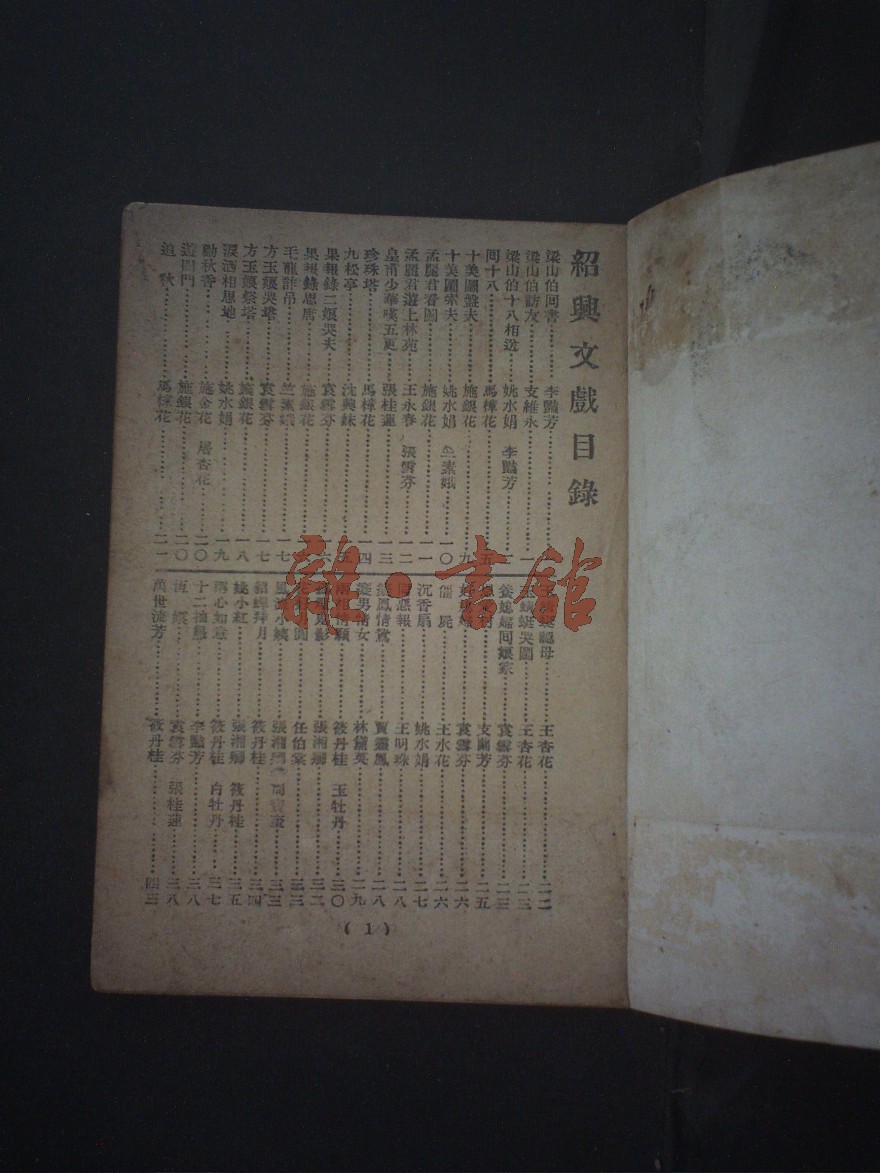 紹興文戲目錄
梁山伯回書 李艷芳 一
梁山伯訪友 支維永 一
梁山伯十八相送 姚水娟 李艷芳
回十八 馬樟花 五
十美圖盤夫 施銀花 九
十美圖索夫 姚水娟 竺素娥 一〇
孟麗君看圖 施銀花 一一
孟麗君遊上林苑 王永春 張雪芬 一二
皇甫少華嘆五更 張桂蓮 一三
珍珠塔 馬樟花 一四
九松亭 沈興妹
果報錄二娘哭夫 袁雪芬 六
果報錄思唐 施銀花
毛龍訴弔 竺素娥 一七
方玉娘哭塔 袁雪芬 一七
方玉娘祭塔 施銀花 一八
淚洒相思地 姚水娟 一九
勸秋香 施金花 屠杏花 二〇
遊園門 施銀花 二〇
追秋 馬樟花 二一
母 王杏花 二二
哭園 王杏花 二三
養媳婦回娘家 袁雪芬 二三
支蘭芳 二五
袁雪芬 二六
屍 王水花 二六
沉香扇 姚水娟 二七
惡報 王明珠 二八
鳳情鴛 賈靈鳳 二八
男情女 林黛英 二九
情願 筱丹桂 玉牡丹 三〇
影 張湘卿 三二
任伯棠 三三
小姨 張湘卿 三三
貂蟬拜月 筱丹桂 三四
姚小紅 張湘卿 筱丹桂 三五
稱心如意 筱丹桂 白牡丹 三七
十二抽籤 李艷芳 三八
恆娘 袁雪芬 張桂蓮 三八
萬世流芳 筱丹桂 四三
( 1 )
雜·書館